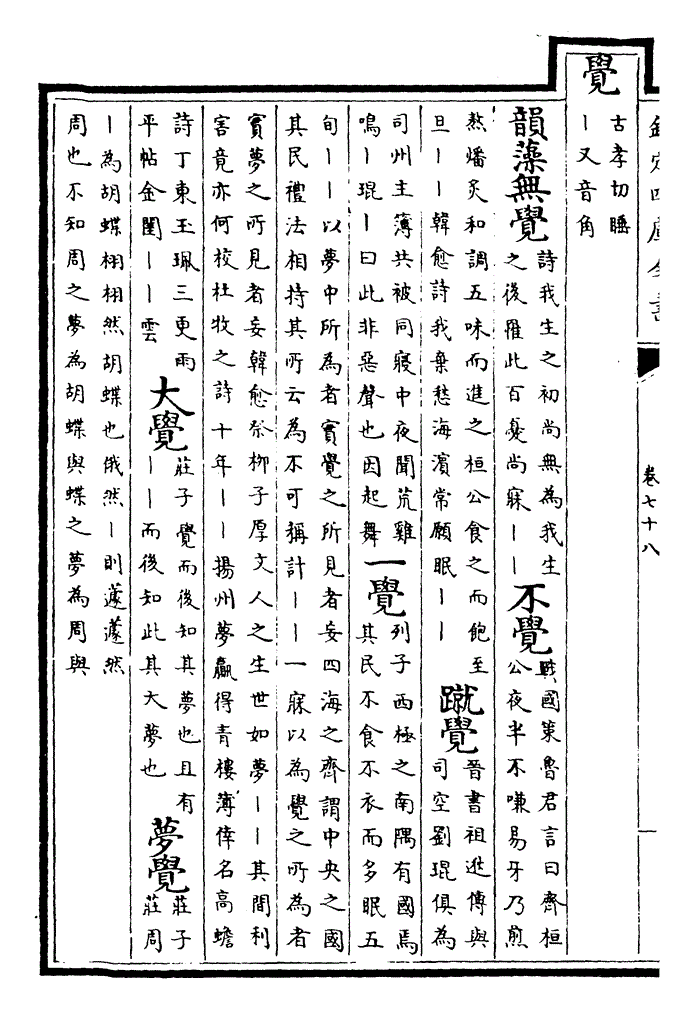 欽定四庫全書
卷七十八
一
覺
古孝切睡
丨又音角
韻藻無覺
詩我生之初尚無為我生
之後罹此百憂尚寐丨丨
不覺
戰國策魯君言曰齊桓
公夜半不嗛易牙乃煎
熬燔炙和調五味而進之桓公食之而飽至
旦丨丨韓愈詩我棄愁海濱常願眠丨丨
蹴覺
晉書祖逖傳與
司空劉琨俱為
司州主簿共被同寢中夜聞荒雞
鳴丨琨丨曰此非惡聲也因起舞
一覺
列子西極之南隅有國焉
其民不食不衣而多眠五
旬丨丨以夢中所為者實覺之所見者妄四海之齊謂中央之國
其民禮法相持其所云為不可稱計丨丨一寐以為覺之所為者
實夢之所見者妄韓愈祭柳子厚文人之生世如夢丨丨其間利
害竟亦何校杜牧之詩十年丨丨揚州夢贏得青樓薄倖名高蟾
詩丁東玉珮三更雨
平帖金閨丨丨雲
大覺
莊子覺而後知其夢也且有
丨丨而後知此其大夢也
夢覺
莊子
莊周
丨為胡蝶栩栩然胡蝶也俄然丨則蘧蘧然
周也不知周之夢為胡蝶與蝶之夢為周與